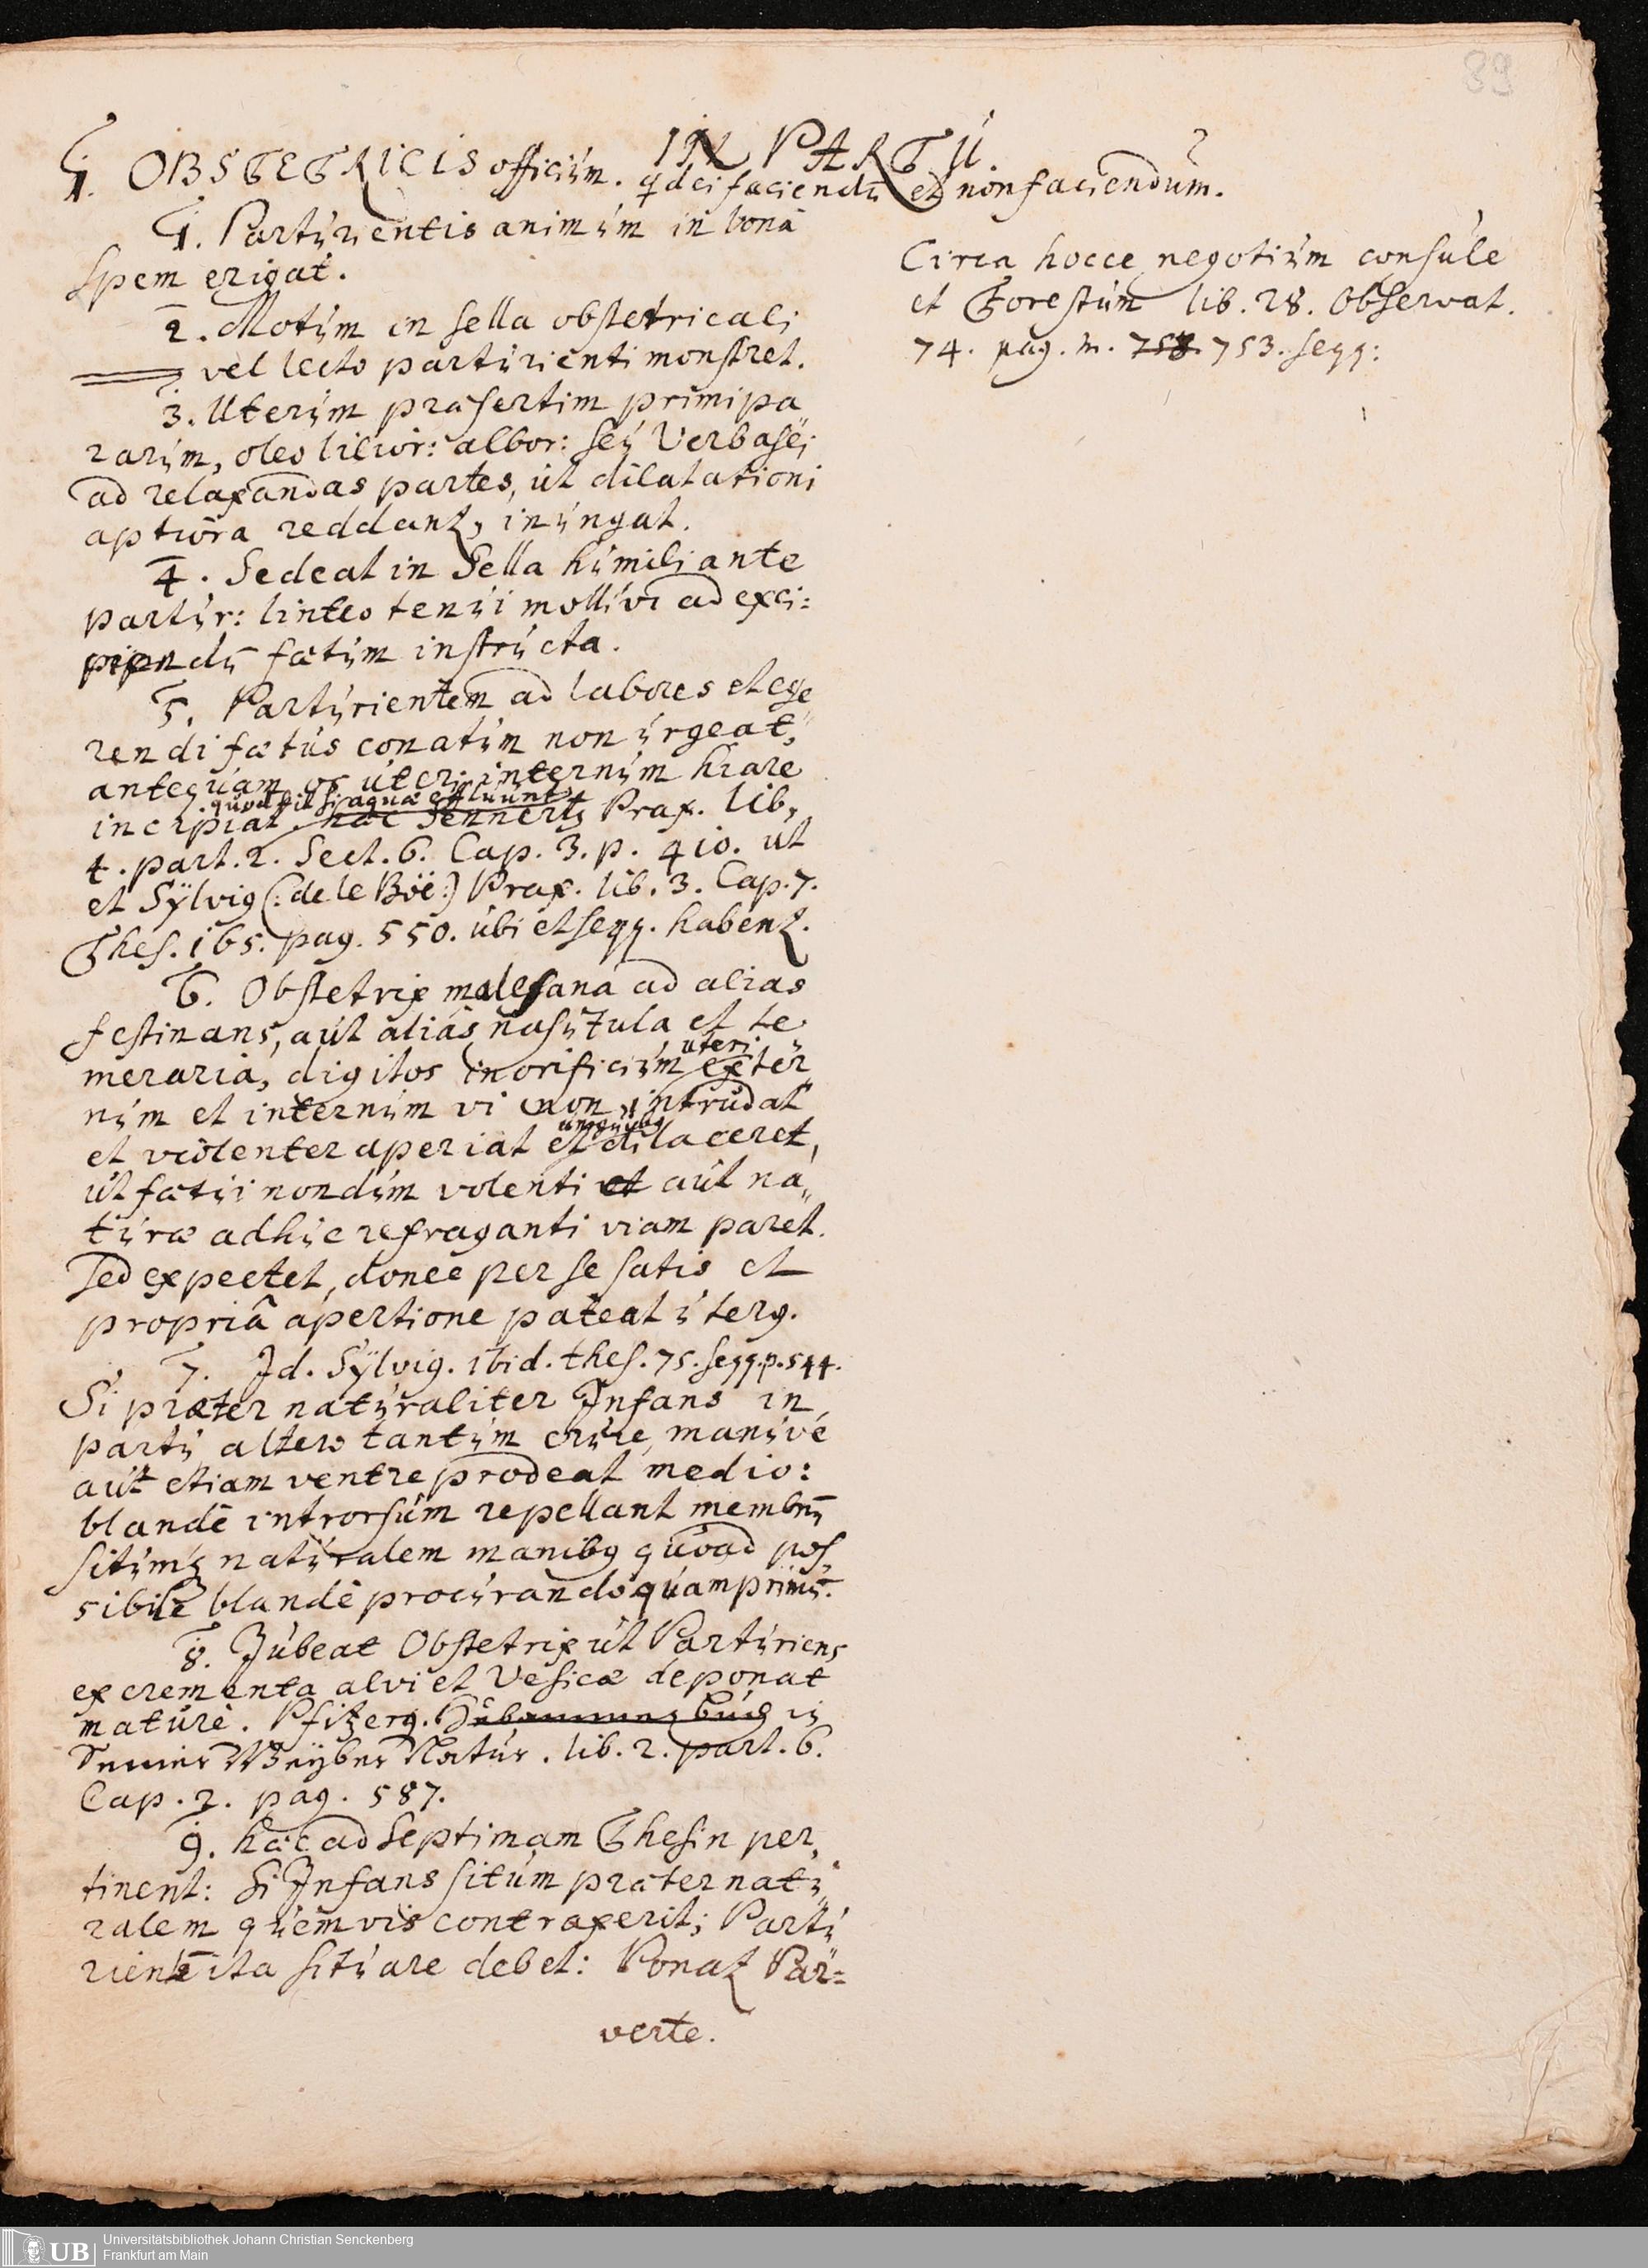 39
IN PARTU.
1. OBSTETRICIS officium. qdci faciendū et non faciendum.
1. Parturientis animum in bonā
spem erigat.
2. Motum in sella obstetricali
vel lecto parturienti monstret.
3. Uterum præsertim primipa„
rarum, oleo lilior: albor: seu Verbasci
ad relaxandas partes, ut dilatationi
aptiora reddantr, inungat.
4. Sedeat in Sella humili ante
partur: linteo tenui mollivi ad exci:
piendū fœtum instructa.
5. Parturientem ad labores et ege„
rendi fœtus conatum non urgeat,
antequam os uteri internum hiare
quod fit si aquæ effluunt,
incipiat, hæc Sennerty Prax. lib.
4. part. 2. Sect. 6. Cap. 3. p. 410. ut
et Sÿlvig (: de le Böë :) Prax. lib. 3. Cap. 7.
Thes. 165. pag. 550. ubi et seqq. habentr.
6. Obstetrix malesana ad alias
festinans, aut aliàs nasutula et te„
meraria, digitos in orificium uteri exter„
num et internum vi non intrudat
et violenter aperiat et unguibg dilaceret,
ut fœtui nondum volenti et aut na„
turæ adhuc refraganti viam paret.
sed expectet, donec per se satis et
propriâ apertione pateat uterg.
7. Id. Sÿlvig. ibid. thes. 75. seqq. p. 544.
Si præter naturaliter Infans in
partu altero tantum crure, manuve
aut etiam ventre prodeat medio:
blandè introrsum repellant membrū
situmq naturalem manibg quoad pos„
sibile blandè procurando quamprimū.
8. Jubeat Obstetrix ut Parturiens
excrementa alvi et Vesicæ deponat
maturè. Pfitzerg. Hebammenbuch in
Seiner Weÿber Natur. lib. 2. part. 6.
Cap. 2. pag. 587.
9. hæc ad septimam Thesin per„
tinent: Si Infans situm præternatu„
ralem quemvis contraxerit; Partu
rientē ita situare debet: Ponatr Par=
verte.
Circa hocce negotium consule
et Forestum lib. 28. Observat.
74. pag. m. 758. 753. seqq:
UB
Universitätsbibliothek Johann Christian Senckenberg
Frankfurt am Main